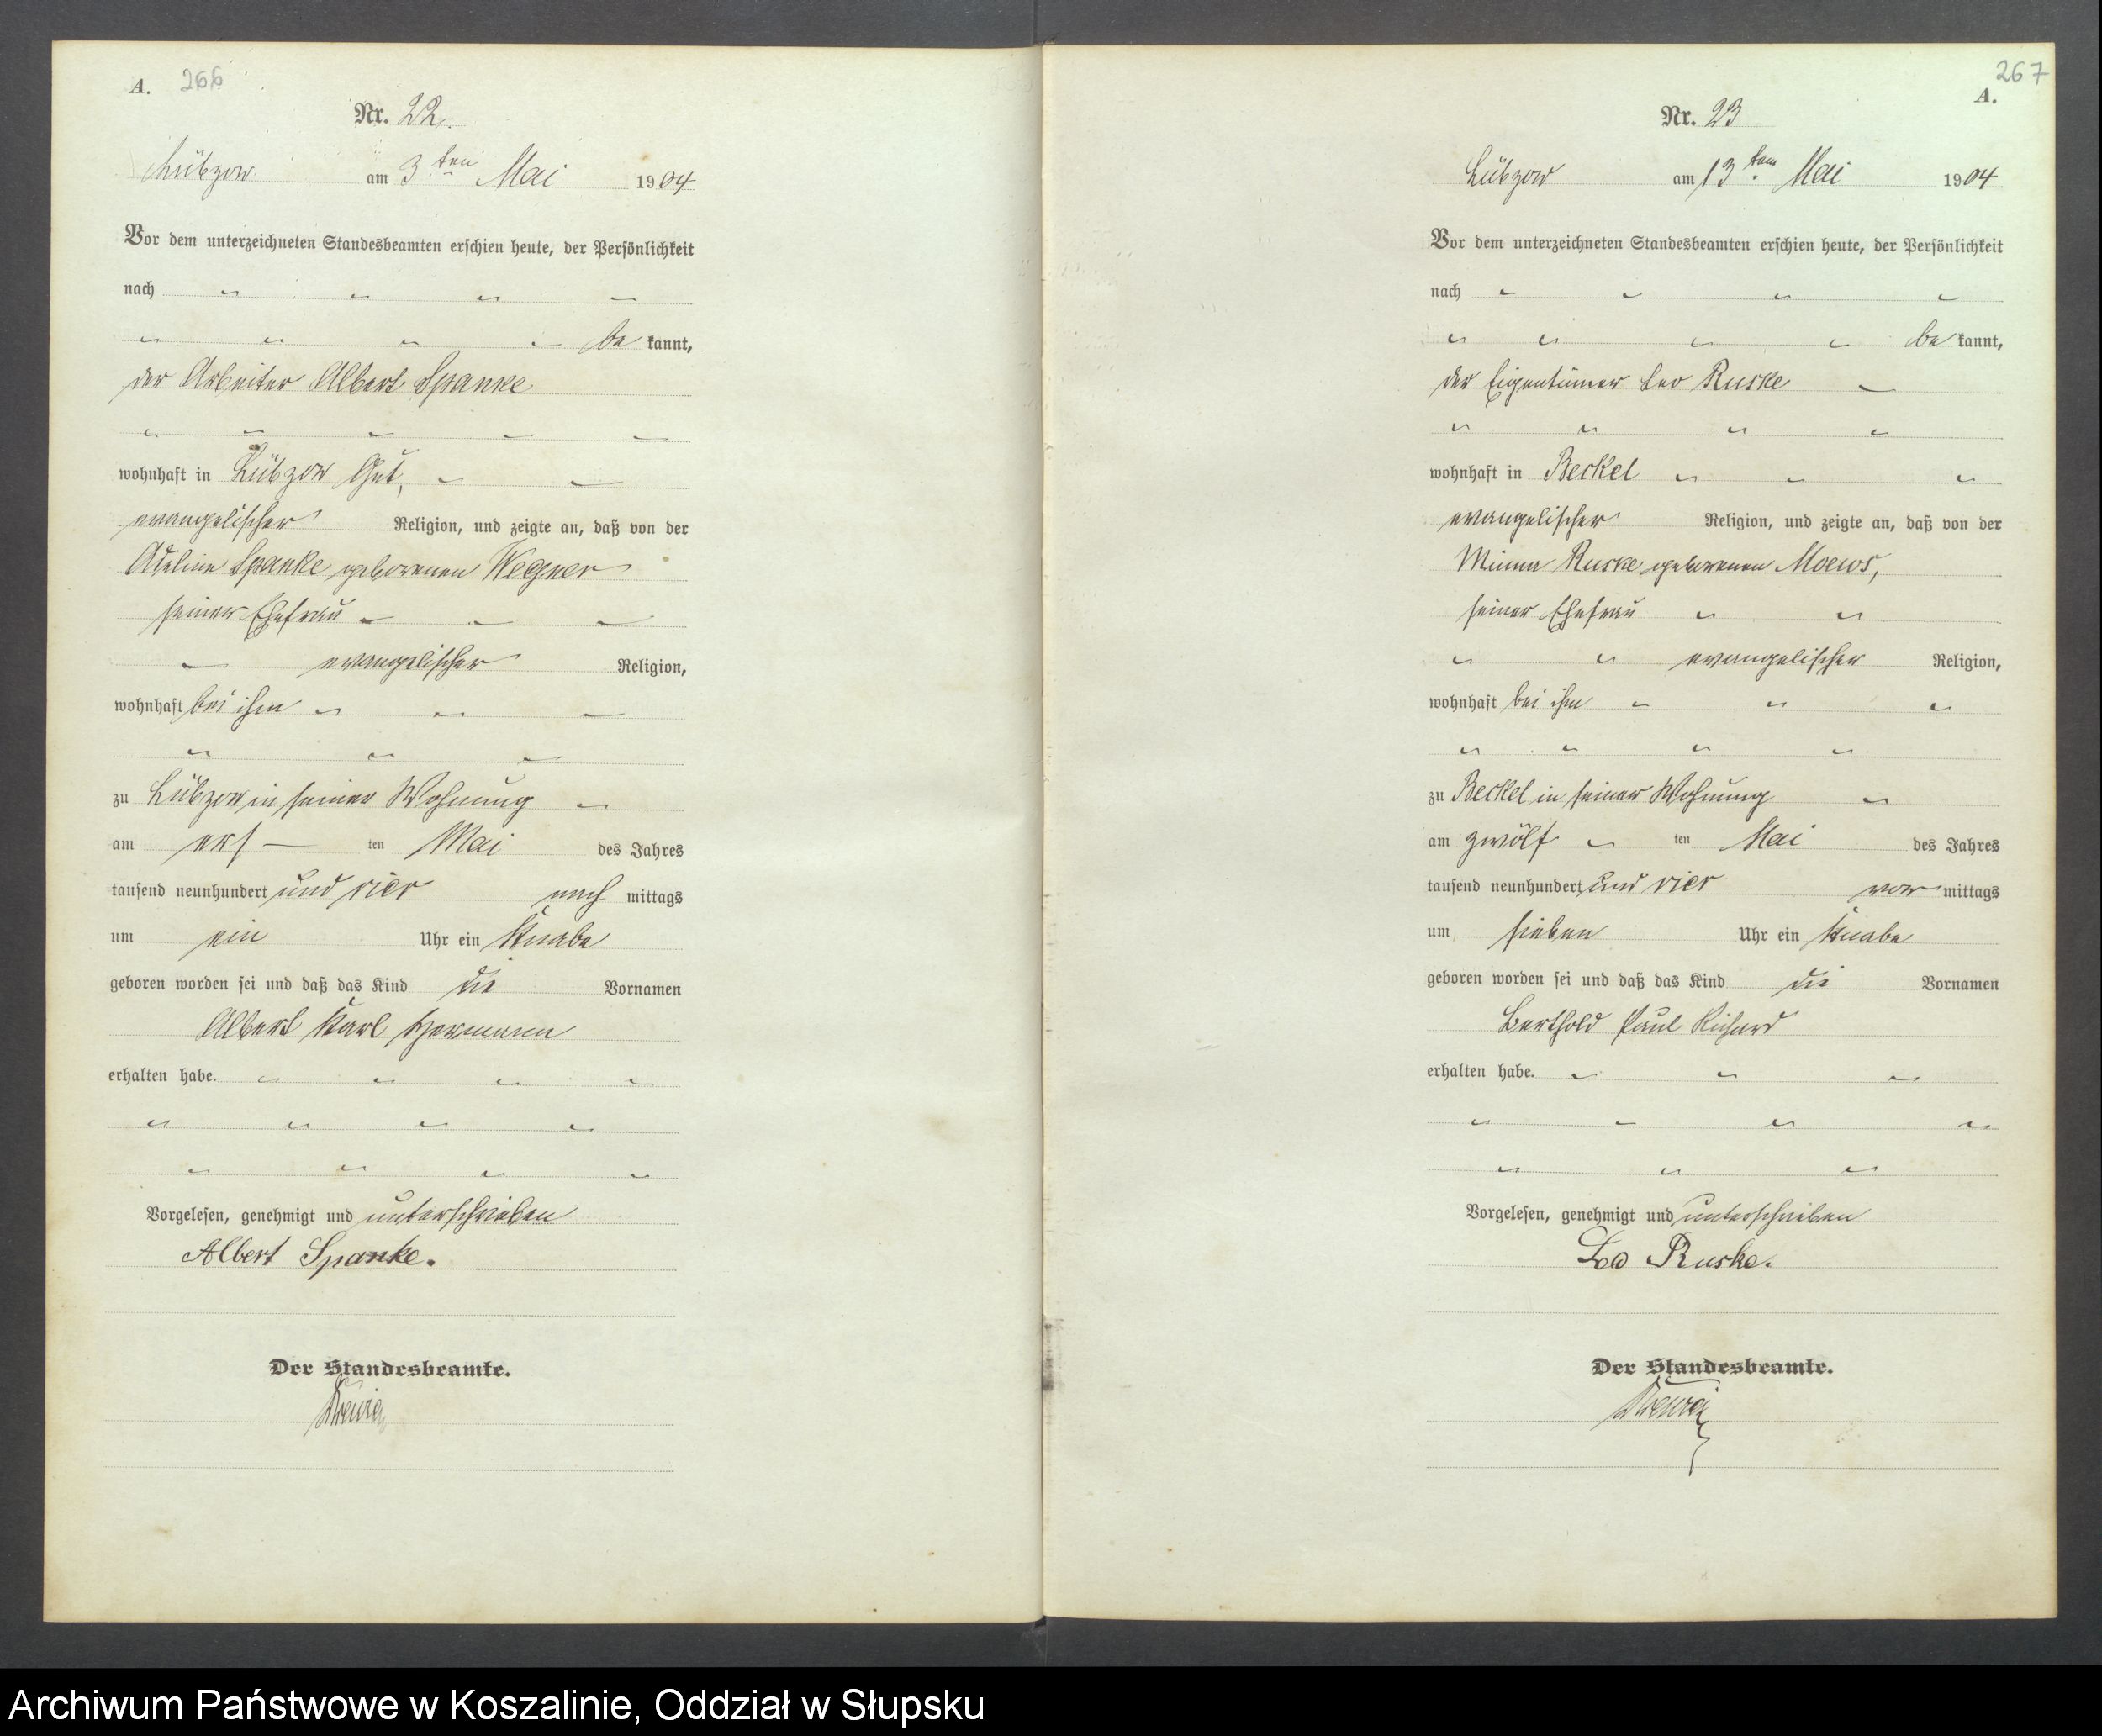 A. 266
Nr. 22.
Lübzow am 3ten Mai 1904
Vor dem unterzeichneten Standesbeamten erschien heute, der Persönlichkeit
nach
be kannt,
der Arbeiter Albert Spanke
wohnhaft in Lübzow Gut,
evangelischer Religion, und zeigte an, daß von der
Adeline Spanke geborenen Wegner
seiner Ehefrau
evangelischer Religion,
wohnhaft bei ihm
zu Lübzow in seiner Wohnung
am ers ten Mai des Jahres
tausend neunhundert und vier nach mittags
um ein Uhr ein Knabe
geboren worden sei und daß das Kind die Vornamen
Albert Karl Hermann
erhalten habe.
Vorgelesen, genehmigt und unterschrieben
Albert Spanke.
Der Standesbeamte.
267
A.
Nr. 23
Lübzow am 13ten Mai 1904
Vor dem unterzeichneten Standesbeamten erschien heute, der Persönlichkeit
nach
be kannt,
der Eigentümer Leo Ruske
wohnhaft in Beckel
evangelischer Religion, und zeigte an, daß von der
Minna Ruske geborenen Moews,
seiner Ehefrau
evangelischer Religion,
wohnhaft bei ihm
zu Beckel in seiner Wohnung
am zwölf ten Mai des Jahres
tausend neunhundert und vier vor mittags
um sieben Uhr ein Knabe
geboren worden sei und daß das Kind die Vornamen
Berthold Paul Richard
erhalten habe.
Vorgelesen, genehmigt und unterschrieben
Leo Ruske.
Der Standesbeamte.
Archiwum Państwowe w Koszalinie, Oddział w Słupsku